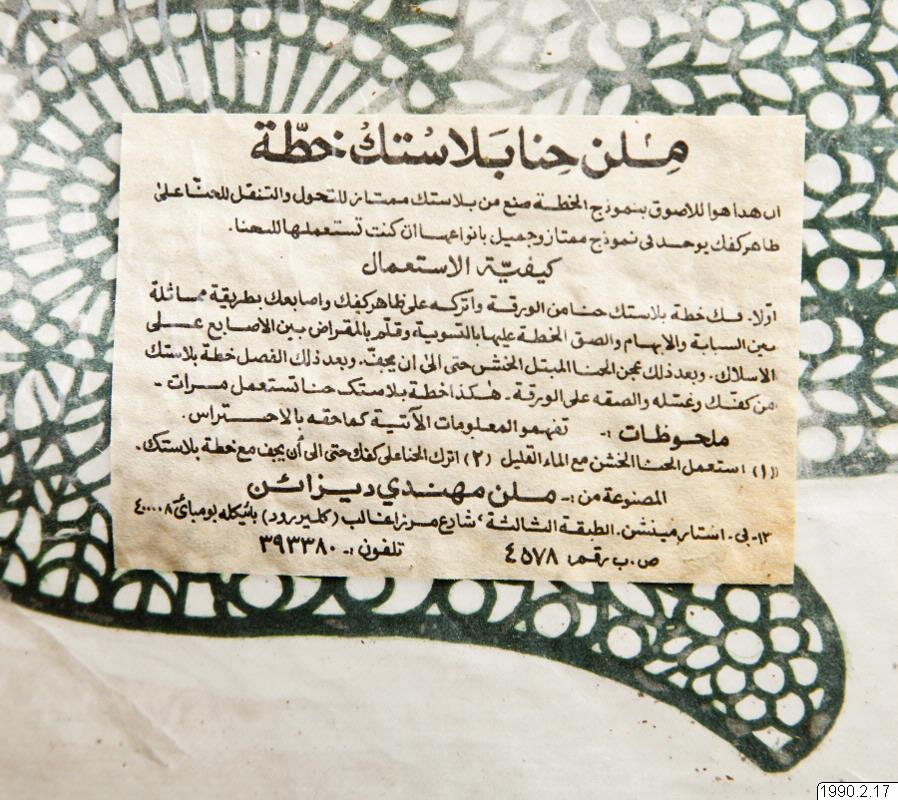 مِلن حِنا بَلاسُتك خطّة
ان هدا هوا للاصوق بنموذج الخطة صنع من بلاستك ممتاز للتحول والتنقل للحنّا علىٰ
ظاهر كفك يوحد فى نموذج ممتاز وجميل بانواعها ان كنت تستعملها للهنا.
كيفيّة الاستعمال
اوّلا. فك خطة بلاستك حنا من الورقة واتركه على ظاهر كفك واصابعك بطريقة مماثلة
بين السبابة والابهام والصق الخطة عليها بالتسوية وقلّم بالمقراض بين الاصابع على
الاسلاك. وبعد ذلك عجن الحنا المبتل الخشن حتى الىٰ ان يجفّ. وبعد ذلك الفصل خطة بلاستك
من كفّك وغسّله والصقه على الورقة۔ هٰكذا خطة بلاستك حنا تستعمل مرات۔
ملحوظات :۔ تفهمو المعلومات الآتية كماحقه بالاحتراس.
(١) استعمل الحنا الخشن مع الماء القليل (٢) اترك الحنا على كفك حتى الى أن يجف مع خطة بلاستك.
المصنوعة من :۔ ملن مهندي ديزائن
١٢۔بى۔ استار مينشن. الطبقة الثالثة، شارع مرزا غالب (كلير رود) بائيكله بومبائ ٤٠٠٠٠٨
ص.ب رقم: ٤٥٧٨ تلفون :۔ ٣٩٣٣٨٠
1990.2.17